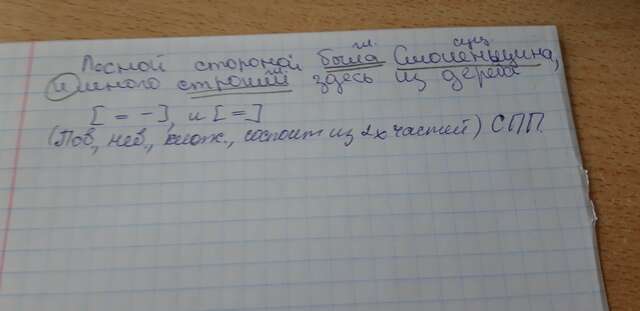 гл. сущ.
Лесной стороной была Смоленщина,
и много строили здесь из дерева
[= -], и [=]
(Пов., нев., слож., состоит из 2х частей) СПП